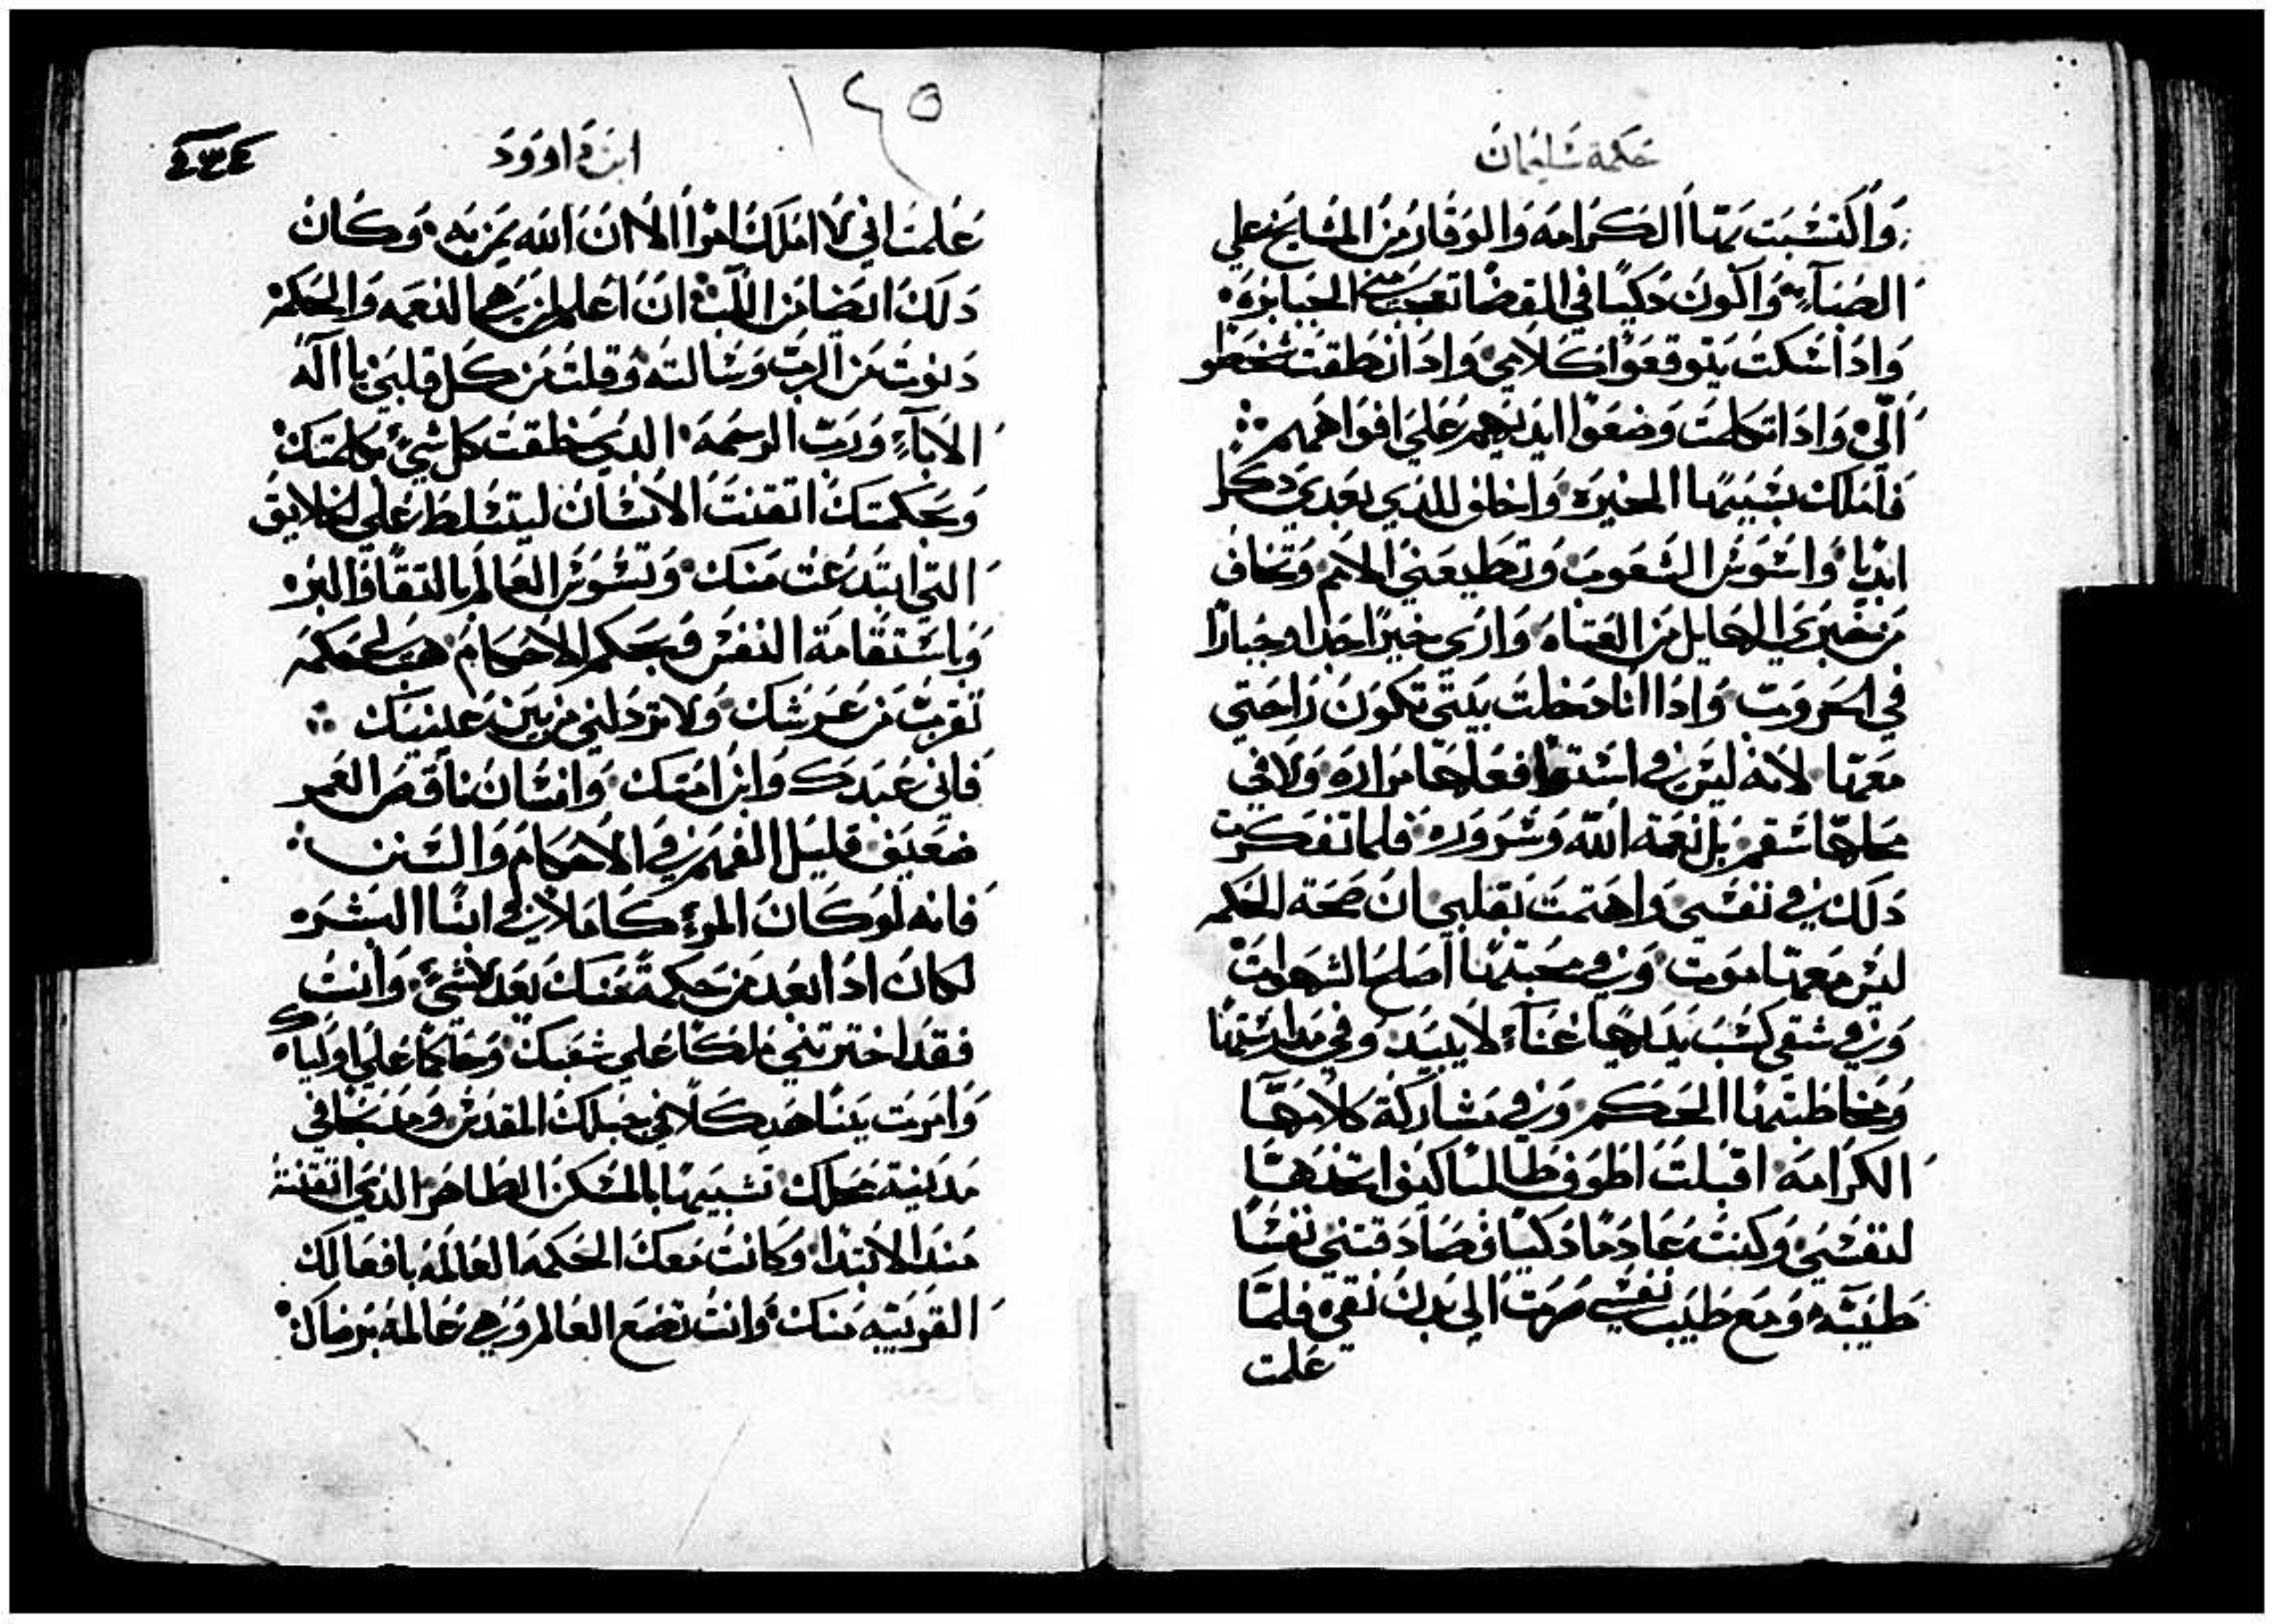 حكمة سليمان
واكتسبت بها الكرامه والوقار من المشايخ علي
الصباء واكون دكيًا في القضا تعجب مني الجبابره
واذا سكت يتوقعوا كلامي واذا نطقت شخطو
الّي واذا اتكلمت وضعوا ايديهم علي افواههم
فاملك بسببها الخيره واخلف للذي بعدي ذكرا
ابديا واسوس الشعوب وتطيعني الامم وتخاف
من خبري الهايل من العتاه واري خيرًا جدا وجبارًا
في الحروب واذا انا دخلت بيتي تكون راحتي
معها لانه ليس في استوا فعلها مراره ولا في
محلها سقم بل نعمة الله وسروره فلما تفكرت
ذلك في نفسي واهتمت بقلبي ان صحة الحكمه
ليس معها موت وفي محبتها اصلح الشهوات
وفي شقي كسب يديها غناء لا يبيد وفي مدارستها
ومخاطبتها الحكم وفي مشاركة كلامها
الكرامه اقبلت اطوف طالبًا كيف اتخذها
لنفسي وكنت غادمًا دكيًا فصادقتني نفسًا
طيبه ومع طيب نفسي صرت الي بدن نقي فلما
علمت
١٤٥
ابن داوود
٤٣٤
علمت اني لا املك امرًا الا ان الله يمن به وكان
ذلك ايضا من اللب ان اعلم لمن هي النعمه والحكمه
دنوت من الرب وسالته وقلت من كل قلبي يا اله
الاباء ورب الرحمه الذي خلقت كل شي بكلمتك
وبحكمتك اتقنت الانسان ليتسلط علي الخلايق
التي ابتدعت منك وتسوس العالم بالتقا والبر
وباستقامة النفس وبحكم الاحكام هب لي حكمه
تقرب من عرشك ولا تردلني من بين عبيدك
فاني عبدك وابن امتك وانسان ناقص العمر
ضعيف قليل الفهم في الاحكام والسنن
فانه لو كان المرء كاملا في ابنا البشره
لكان اذا ابعد من حكمة منك يعد لاشي وانت
فقد اخترتني ملكًا علي شعبك وحاكمًا علي اولياك
وامرت ببنا هيكلا في جبلك المقدس ومذبحًا في
مدينة محلك تشبيها بالمسكن الطاهر الذي اتقنته
منذ الابتدا وكانت معك الحكمه العالمه بافعالك
القريبه منك وانت تصنع العالم وهي عالمه برضاك